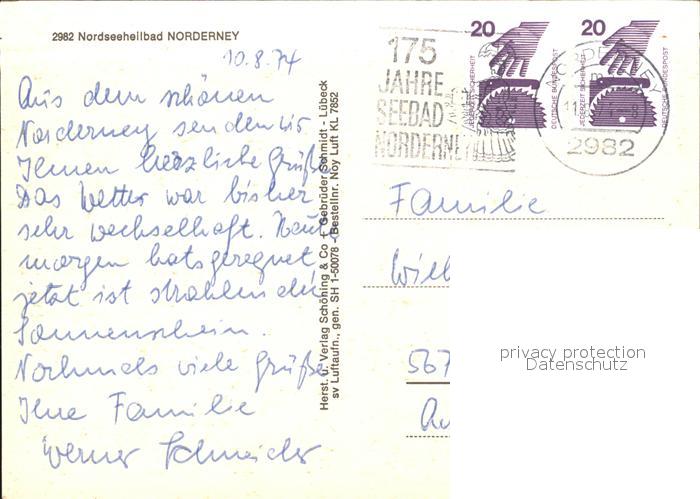 2982 Nordseeheilbad NORDERNEY
10.8.74
Aus dem schönen
Norderney senden wir
Ihnen herzliche Grüße
Das Wetter war bisher
sehr wechselhaft. Heute
morgen hats geregnet
jetzt ist strahlender
Sonnenschein.
Nochmals viele Grüße
Ihre Familie
Werner Schneider
Herst. u. Verlag Schöning & Co + Gebrüder Schmidt - Lübeck
sv Luftaufn., gen. SH 1-50078 - Bestellnr. Noy Luft KL 7852
175
JAHRE
SEEBAD
NORDERNEY
20
JEDERZEIT SICHERHEIT
DEUTSCHE BUNDESPOST
20
JEDERZEIT SICHERHEIT
DEUTSCHE BUNDESPOST
NORDERNEY
m
2982
Familie
567
privacy protection
Datenschutz